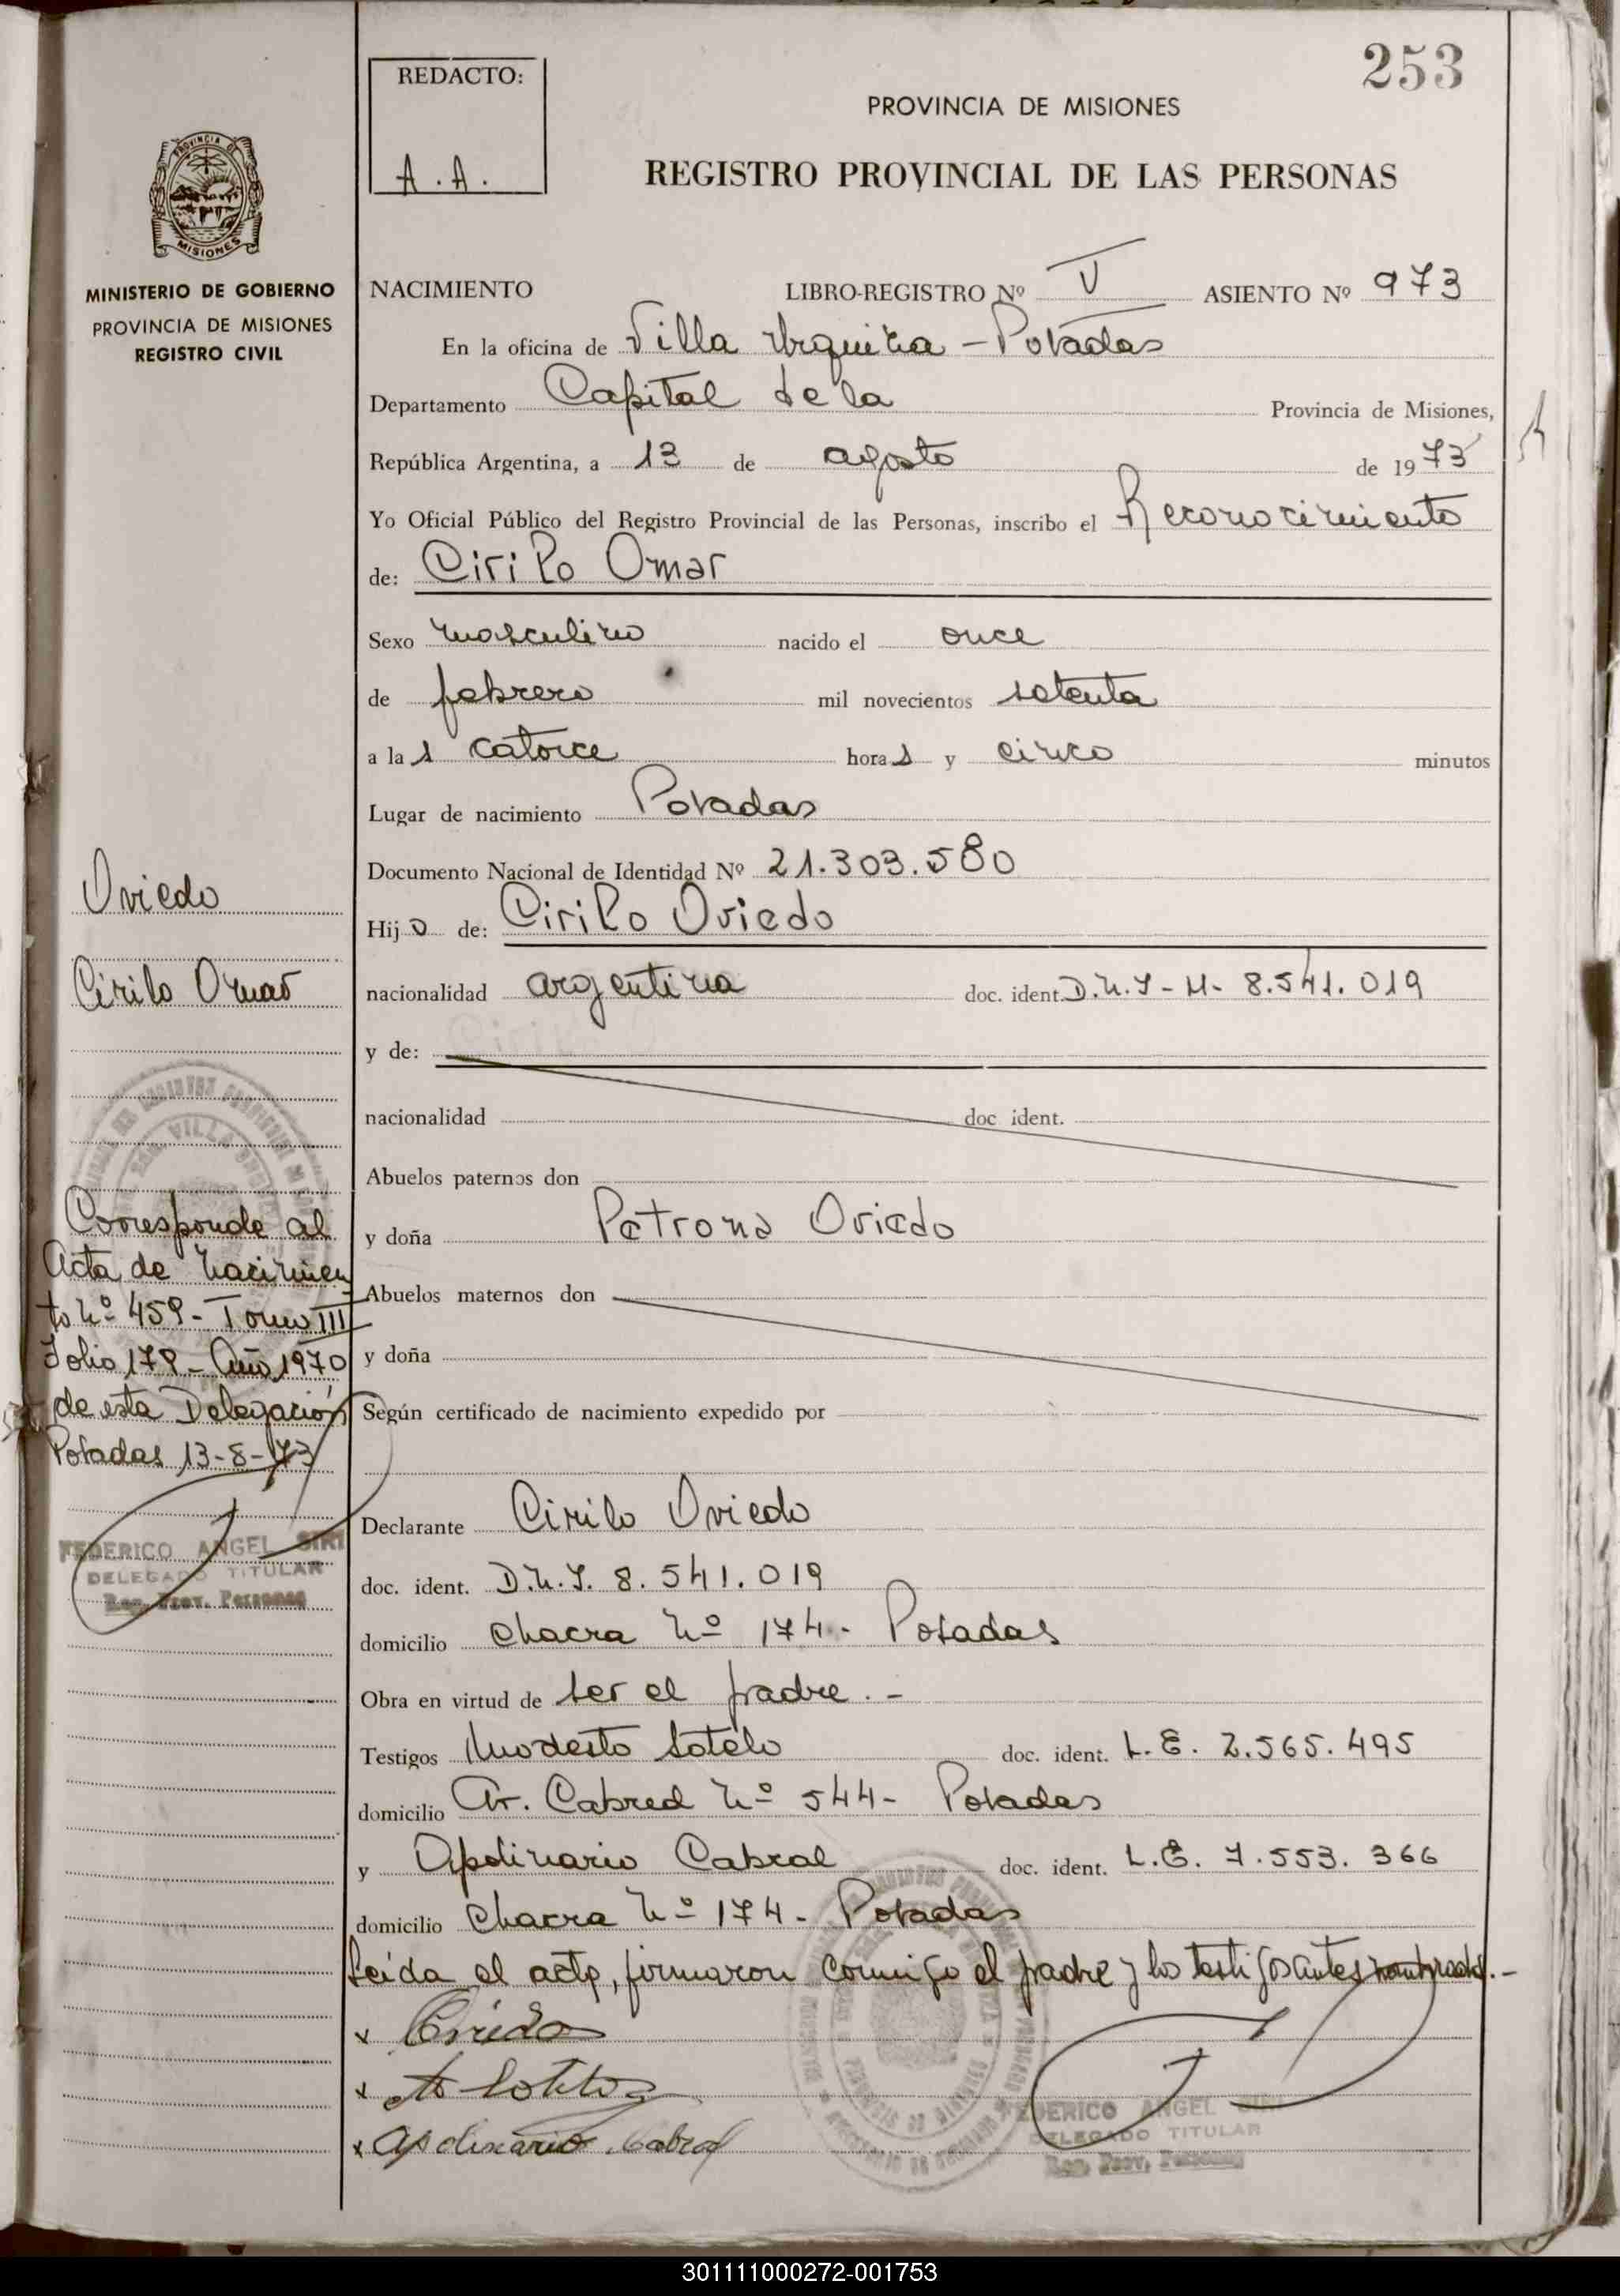 253
REDACTO:
A.A.
PROVINCIA DE MISIONES
REGISTRO PROVINCIAL DE LAS PERSONAS
PROVINCIA DE
MISIONES
MINISTERIO DE GOBIERNO
PROVINCIA DE MISIONES
REGISTRO CIVIL
NACIMIENTO LIBRO-REGISTRO Nº V ASIENTO Nº 973
En la oficina de Villa Urquiza - Posadas
Departamento Capital de la Provincia de Misiones,
República Argentina, a 13 de agosto de 1973
Yo Oficial Público del Registro Provincial de las Personas, inscribo el Reconocimiento
de: Cirilo Omar
Sexo masculino nacido el once
de febrero mil novecientos setenta
a las catorce horas y cinco minutos
Lugar de nacimiento Posadas
Documento Nacional de Identidad Nº 21.303.580
Hijo de: Cirilo Oviedo
nacionalidad argentina doc. ident. D.N.I-M- 8.541.019
y de:
nacionalidad doc ident.
Abuelos paternos don
y doña Petrona Oviedo
Abuelos maternos don
y doña
Según certificado de nacimiento expedido por
Declarante Cirilo Oviedo
doc. ident. D.N.I. 8.541.019
domicilio Chacra Nº 174- Posadas
Obra en virtud de ser el padre.-
Testigos Modesto Sotelo doc. ident. L.E. 2.565.495
domicilio Av. Cabred Nº 544- Posadas
y Apolinario Cabral doc. ident. L.E. 7.553.366
domicilio Chacra Nº 174- Posadas
Leída el acta, firmaron conmigo el padre y los testigos antes nombrados.-
x Oviedo
x M Sotelo
x Apolinario Cabral
FEDERICO ANGEL SIRI
DELEGADO TITULAR
Reg. Prov. Personas
Oviedo
Cirilo Omar
Corresponde al
Acta de Nacimien
to Nº 459- Tomo III
Folio 179- Año 1970
de esta Delegación
Posadas 13-8-73
FEDERICO ANGEL SIRI
DELEGADO TITULAR
Reg. Prov. Personas
301111000272-001753